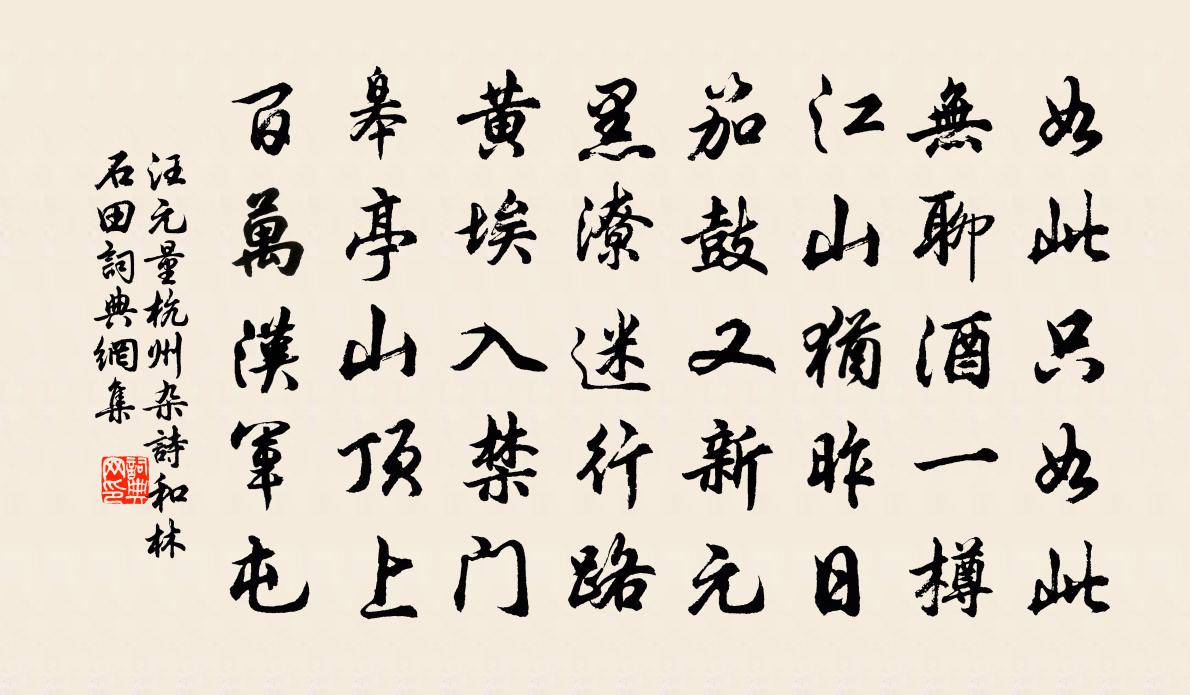 如此只如此
無聊酒一樽
江山猶昨日
笳鼓又新元
黑潦迷行路
黄埃入禁门
皋亭山顶上
百萬漢軍屯
汪元量杭州杂詩和林
石田詞典網集
詞典
网印